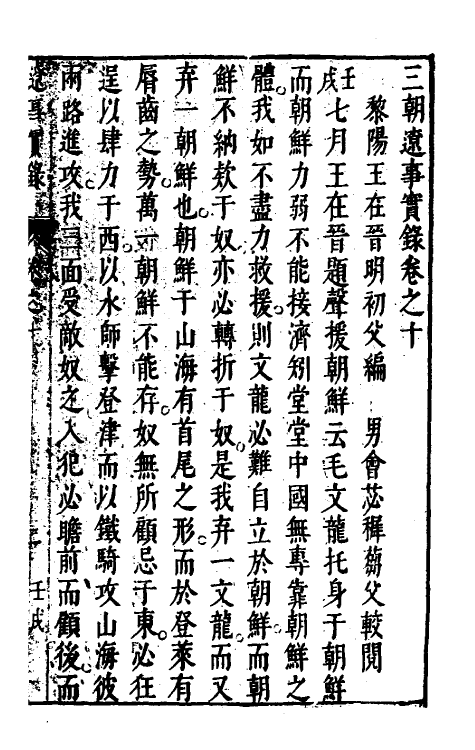 三朝遼事實錄卷之十
黎陽王在晉明初父編　男會苾穉芻父較閱
壬戌七月王在晉題聲援朝鮮云毛文龍托身于朝鮮
而朝鮮力弱不能接濟矧堂堂中國無專靠朝鮮之
體我如不盡力救援則文龍必難自立於朝鮮而朝
鮮不納欵于奴亦必轉折于奴是我弃一文龍而又
弃一朝鮮也朝鮮于山海有首尾之形而於登萊有
脣齒之勢萬一朝鮮不能存奴無所顧忌于東必狂
逞以肆力于西以水師擊登津而以鐵騎攻山海彼
兩路進攻我三面受敵奴之入犯必瞻前而顧後而
遼事實錄　卷之十　壬戌